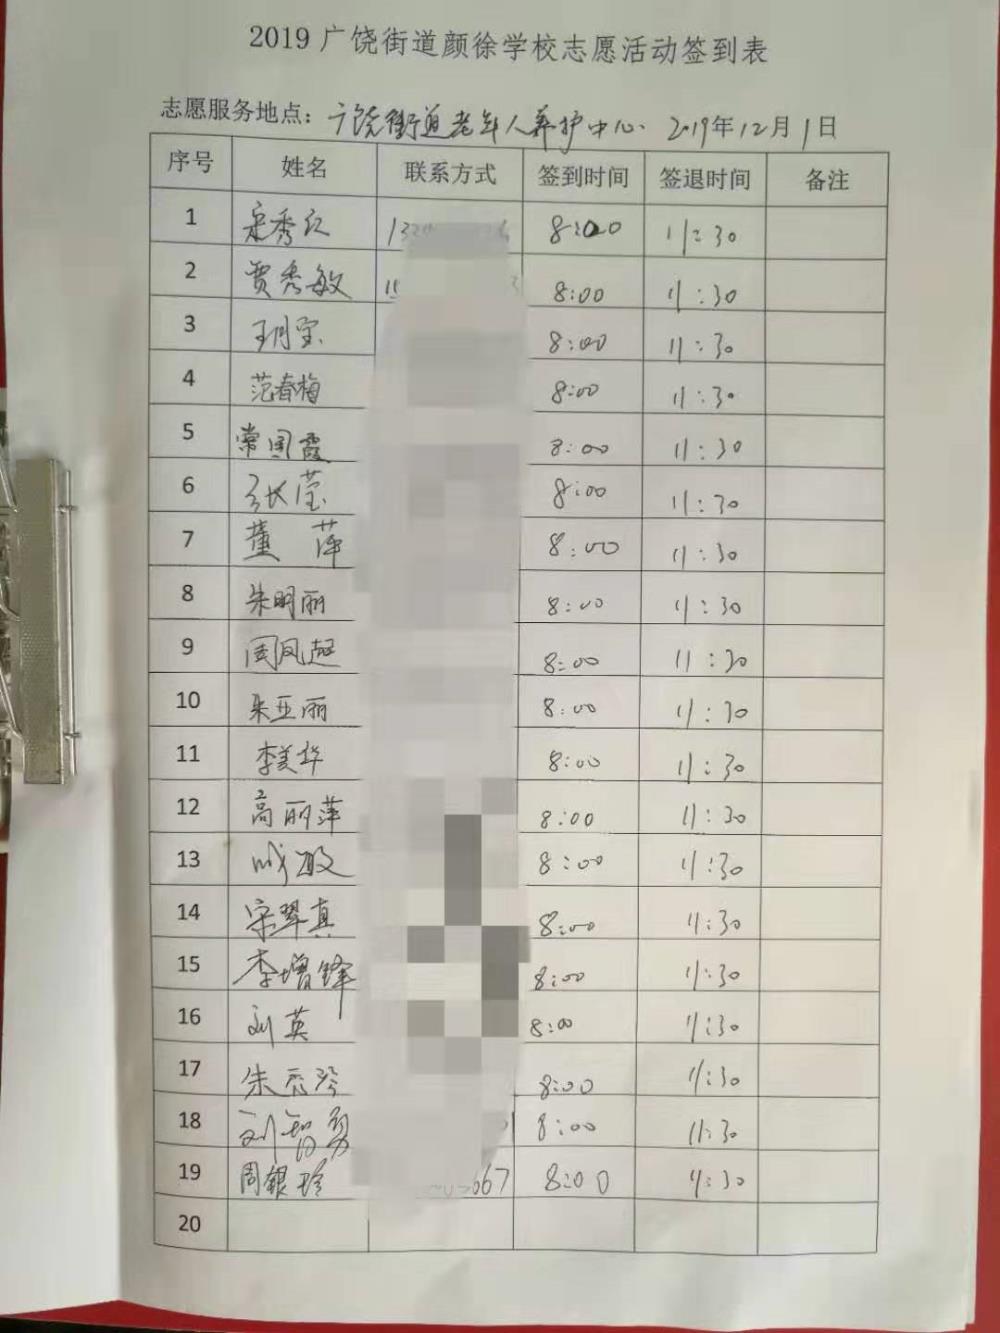 2019 广饶街道颜徐学校志愿活动签到表
志愿服务地点：广饶街道老年人养护中心. 2019年12月1日
序号 姓名 联系方式 签到时间 签退时间 备注
1 宋秀 8:00 11:30
2 贾秀敏 8:00 11:30
3 王月宝 8:00 11:30
4 范春梅 8:00 11:30
5 常国霞 8:00 11:30
6 张莹 8:00 11:30
7 董萍 8:00 11:30
8 朱明丽 8:00 11:30
9 周凤超 8:00 11:30
10 朱亚丽 8:00 11:30
11 李美华 8:00 11:30
12 高丽萍 8:00 11:30
13 成敏 8:00 11:30
14 宋翠真 8:00 11:30
15 李增锋 8:00 11:30
16 刘英 8:00 11:30
17 朱秀玲 8:00 11:30
18 刘智勇 8:00 11:30
19 周银珍 667 8:00 11:30
20